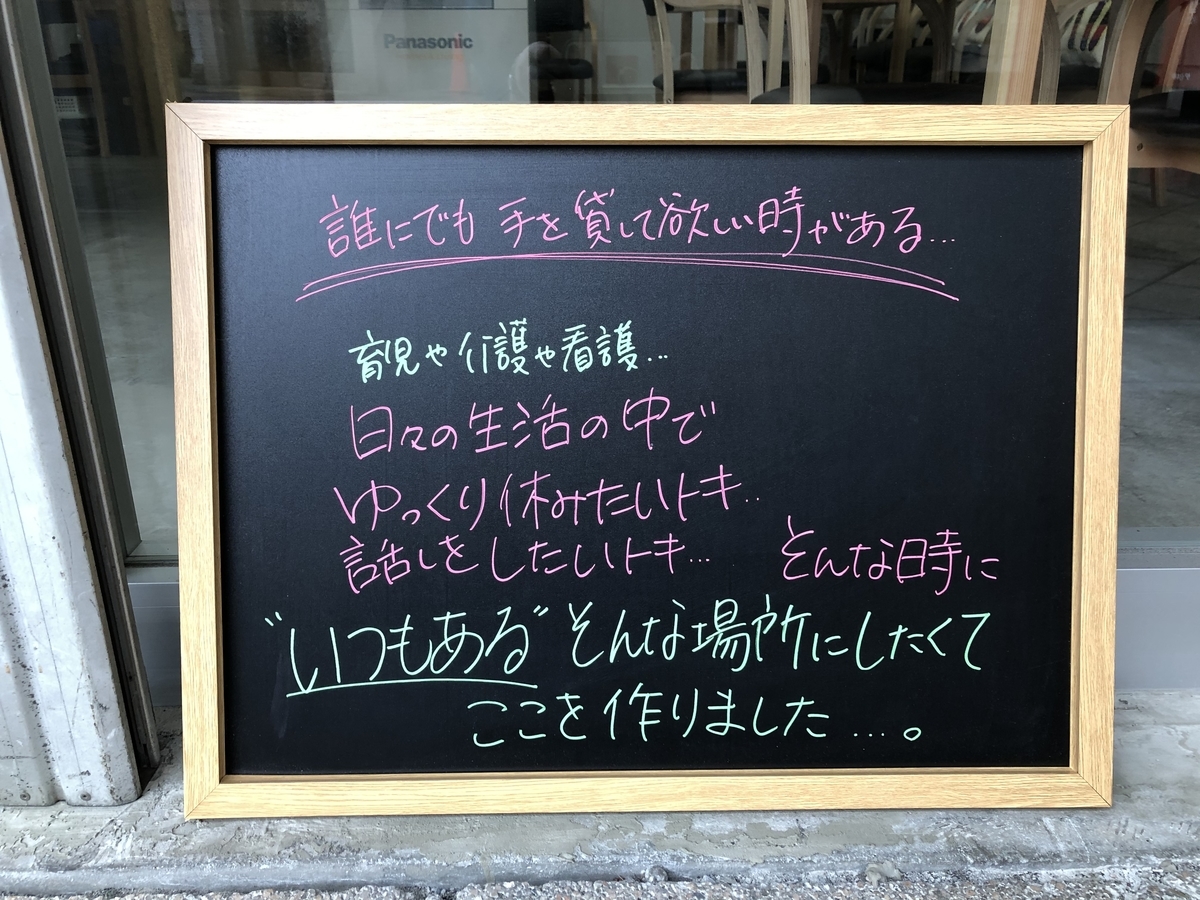 Panasonic
誰にでも 手を貸して欲しい時がある...
育児や介護や看護...
日々の生活の中で
ゆっくり休みたいトキ..
話しをしたいトキ... そんな時に
"いつもある"そんな場所にしたくて
ここを作りました...。